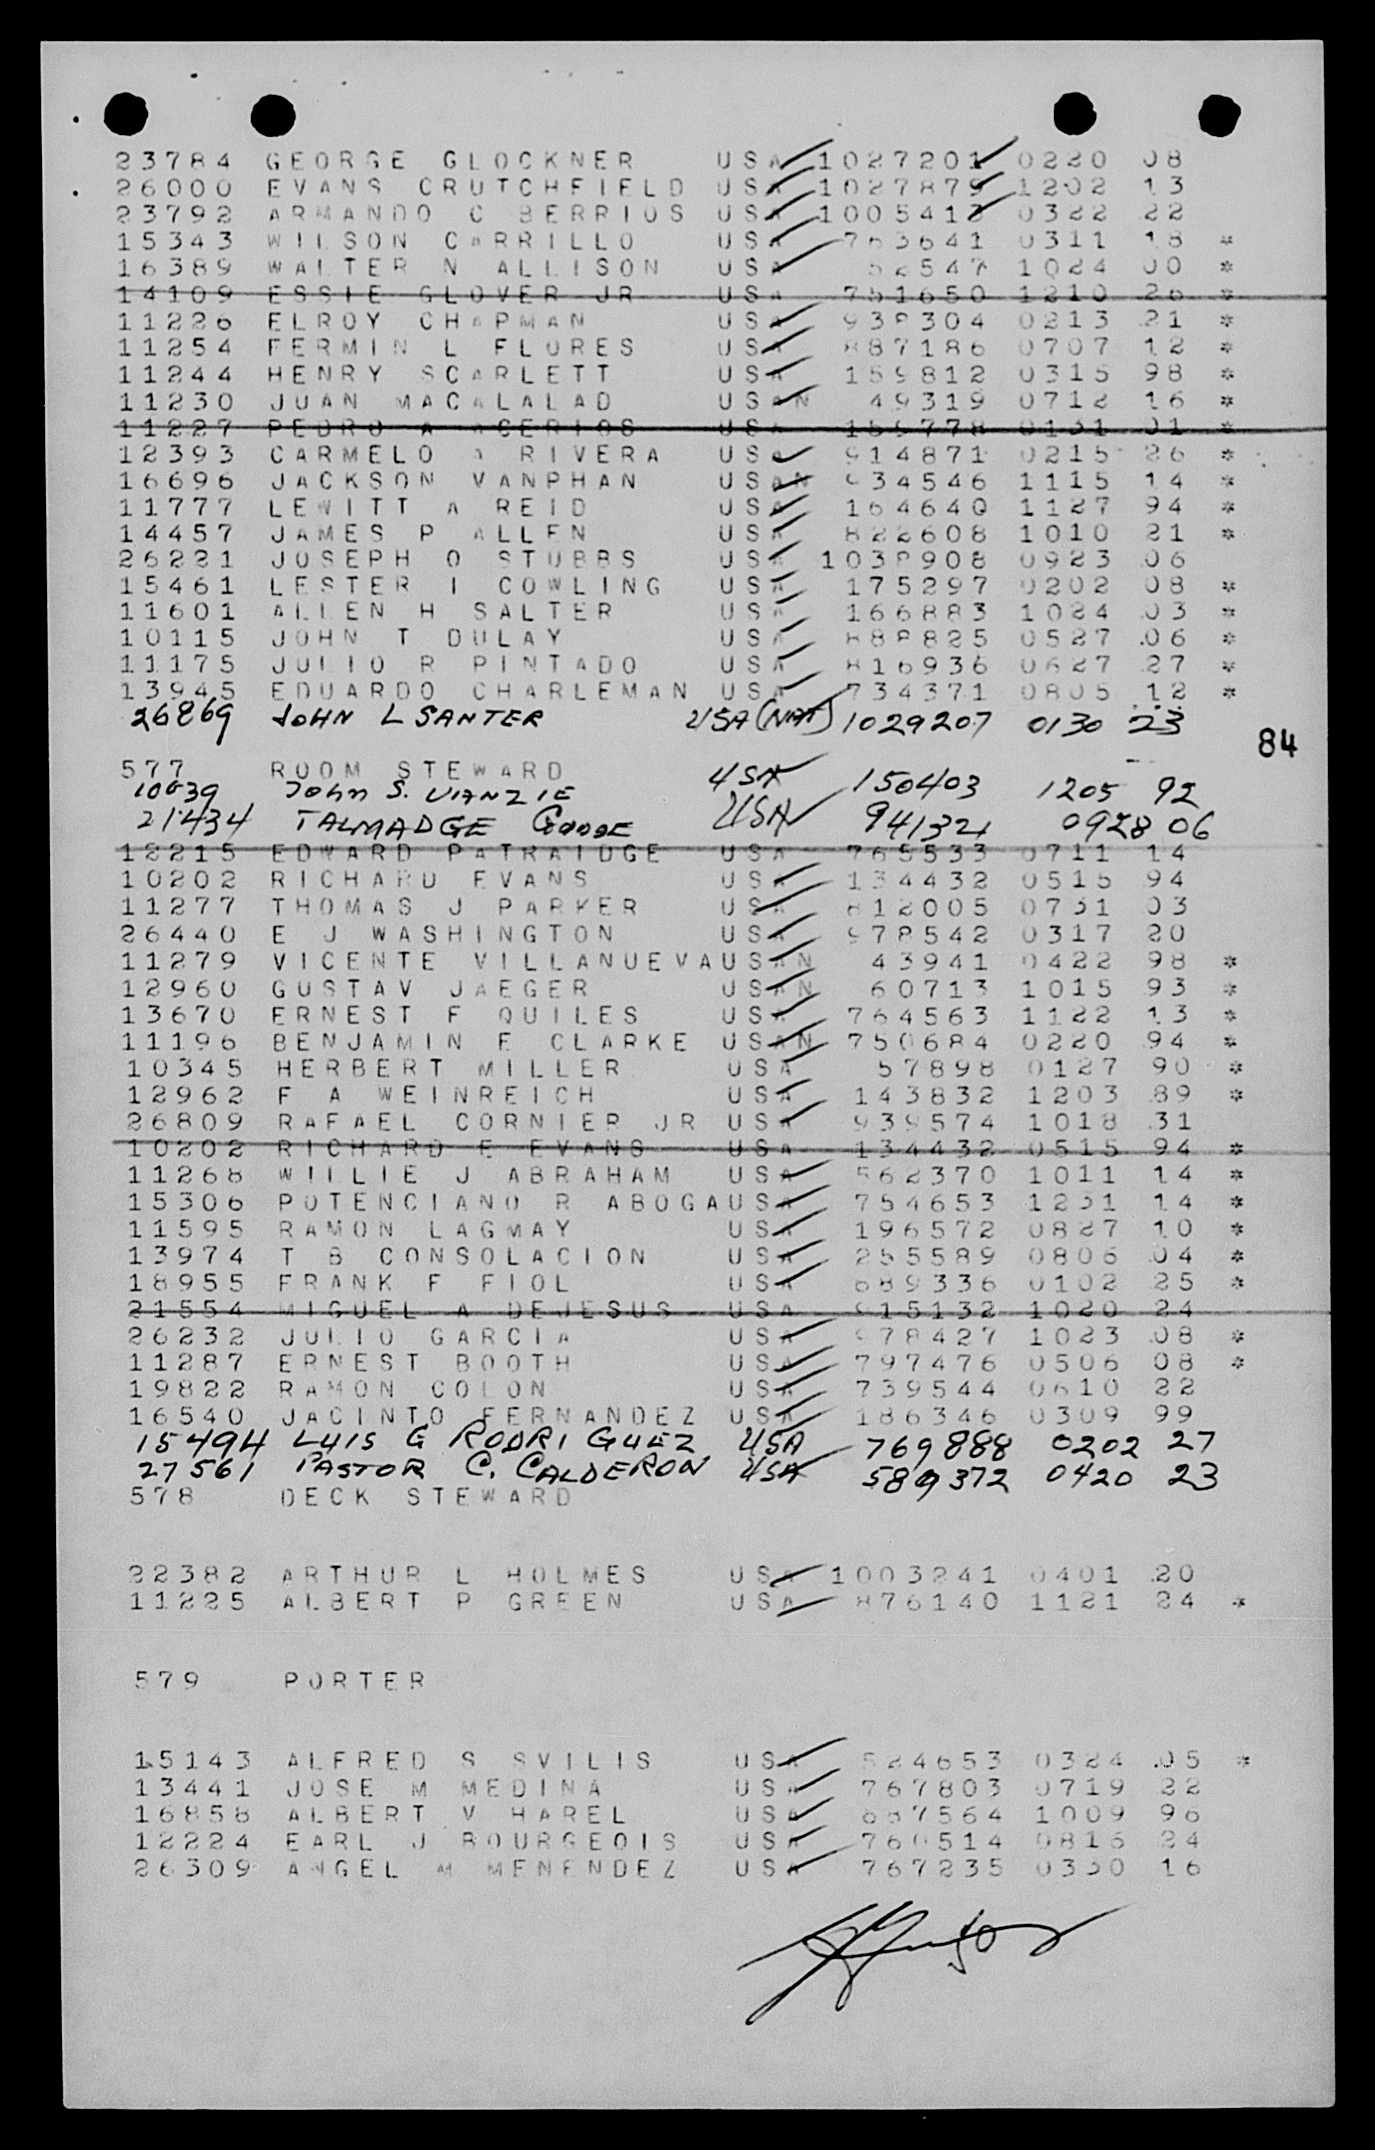 23784 GEORGE GLOCKNER USA 1027201 0220 08
26000 EVANS CRUTCHFIELD USA 1027879 1202 13
23792 ARMANDO C BERRIOS USA 1005413 0322 22
15343 WILSON CARRILLO USA 763641 0311 18 *
16389 WALTER N ALLISON USA 52547 1024 00 *
14109 ESSIE GLOVER JR USA 751650 1210 26 *
11226 ELROY CHAPMAN USA 938304 0213 21 *
11254 FERMIN L FLORES USA 887186 0707 12 *
11244 HENRY SCARLETT USA 159812 0315 98 *
11230 JUAN MACALALAD USAN 49319 0712 16 *
11227 PEDRO A ACERIOS USA 159778 0131 01 *
12393 CARMELO A RIVERA USA 914871 0215 26 *
16696 JACKSON VANPHAN USAN 934546 1115 14 *
11777 LEWITT A REID USA 164640 1127 94 *
14457 JAMES P ALLEN USA 822608 1010 21 *
26221 JOSEPH O STUBBS USA 1038908 0923 06
15461 LESTER I COWLING USA 175297 0202 08 *
11601 ALLEN H SALTER USA 166883 1024 03 *
10115 JOHN T DULAY USA 888825 0527 06 *
11175 JULIO R PINTADO USA 816936 0627 27 *
13945 EDUARDO CHARLEMAN USA 734371 0805 12 *
26869 JOHN L SANTER USA (NAT) 1029207 0130 23
84
577 ROOM STEWARD
10639 John S. VIANZIE USA 150403 1205 92
21434 TALMADGE GOODE USA 941321 0928 06
12215 EDWARD PATRAIDGE USA 765533 0711 14
10202 RICHARD EVANS USA 134432 0515 94
11277 THOMAS J PARKER USA 812005 0731 03
26440 E J WASHINGTON USA 978542 0317 20
11279 VICENTE VILLANUEVAUSAN 43941 0422 98 *
12960 GUSTAV JAEGER USAN 60713 1015 93 *
13670 ERNEST F QUILES USA 764563 1122 13 *
11196 BENJAMIN F CLARKE USAN 750684 0220 94 *
10345 HERBERT MILLER USA 57898 0127 90 *
12962 F A WEINREICH USA 143832 1203 89 *
26809 RAFAEL CORNIER JR USA 939574 1018 31
10202 RICHARD E EVANS USA 134432 0515 94 *
11268 WILLIE J ABRAHAM USA 562370 1011 14 *
15306 POTENCIANO R ABOGAUSA 754653 1231 14 *
11595 RAMON LAGMAY USA 196572 0827 10 *
13974 T B CONSOLACION USA 255589 0806 04 *
18955 FRANK F FIOL USA 689336 0102 25 *
21554 MIGUEL A DEJESUS USA 915132 1020 24
26232 JULIO GARCIA USA 978427 1023 08 *
11287 ERNEST BOOTH USA 797476 0506 08 *
19822 RAMON COLON USA 739544 0610 22
16540 JACINTO FERNANDEZ USA 186346 0309 99
15494 LUIS G RODRIGUEZ USA 769888 0202 27
27561 PASTOR C. CALDERON USA 589372 0420 23
578 DECK STEWARD
22382 ARTHUR L HOLMES USA 1003241 0401 20
11225 ALBERT P GREEN USA 876140 1121 24 *
579 PORTER
15143 ALFRED S SVILIS USA 524653 0324 05 *
13441 JOSE M MEDINA USA 767803 0719 22
16858 ALBERT V HAREL USA 687564 1009 96
12224 EARL J BOURGEOIS USA 760514 0816 24
26309 ANGEL M MENENDEZ USA 767235 0330 16